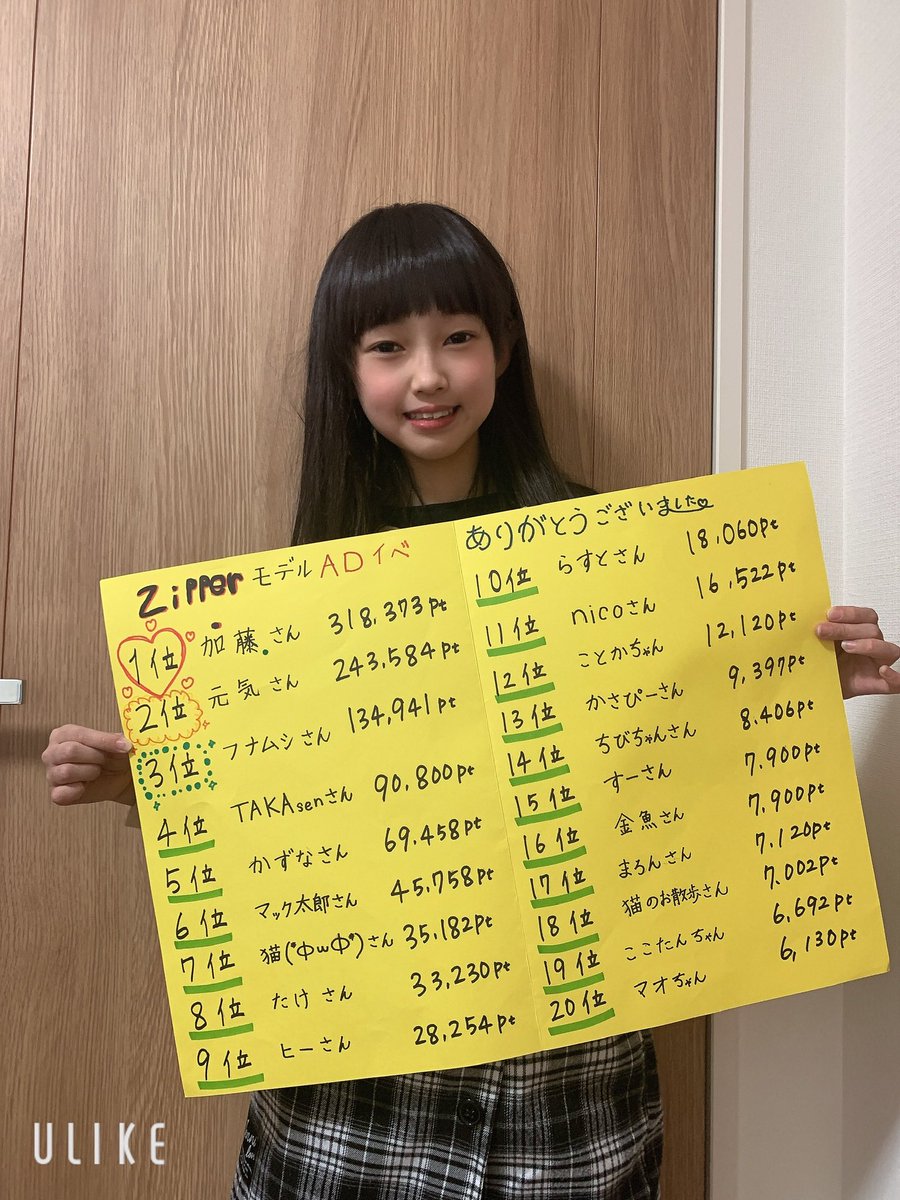 Zipper モデル ADイベ
1位 加藤さん 318,373pt
2位 元気さん 243,584pt
3位 フナムシさん 134,941pt
4位 TAKAsenさん 90,800pt
5位 かずなさん 69,458pt
6位 マック太郎さん 45,758pt
7位 猫(ФωФ)さん 35,182pt
8位 たけさん 33,230pt
9位 ヒーさん 28,254pt
ありがとうございました♡
10位 らすとさん 18,060pt
11位 nicoさん 16,522pt
12位 ことかちゃん 12,120pt
13位 かさぴーさん 9,397pt
14位 ちびちゃんさん 8.406pt
15位 すーさん 7,900pt
16位 金魚さん 7,900pt
17位 まろんさん 7,120pt
18位 猫のお散歩さん 7,002pt
19位 ここたんちゃん 6,692pt
20位 マオちゃん 6,130pt
ULIKE